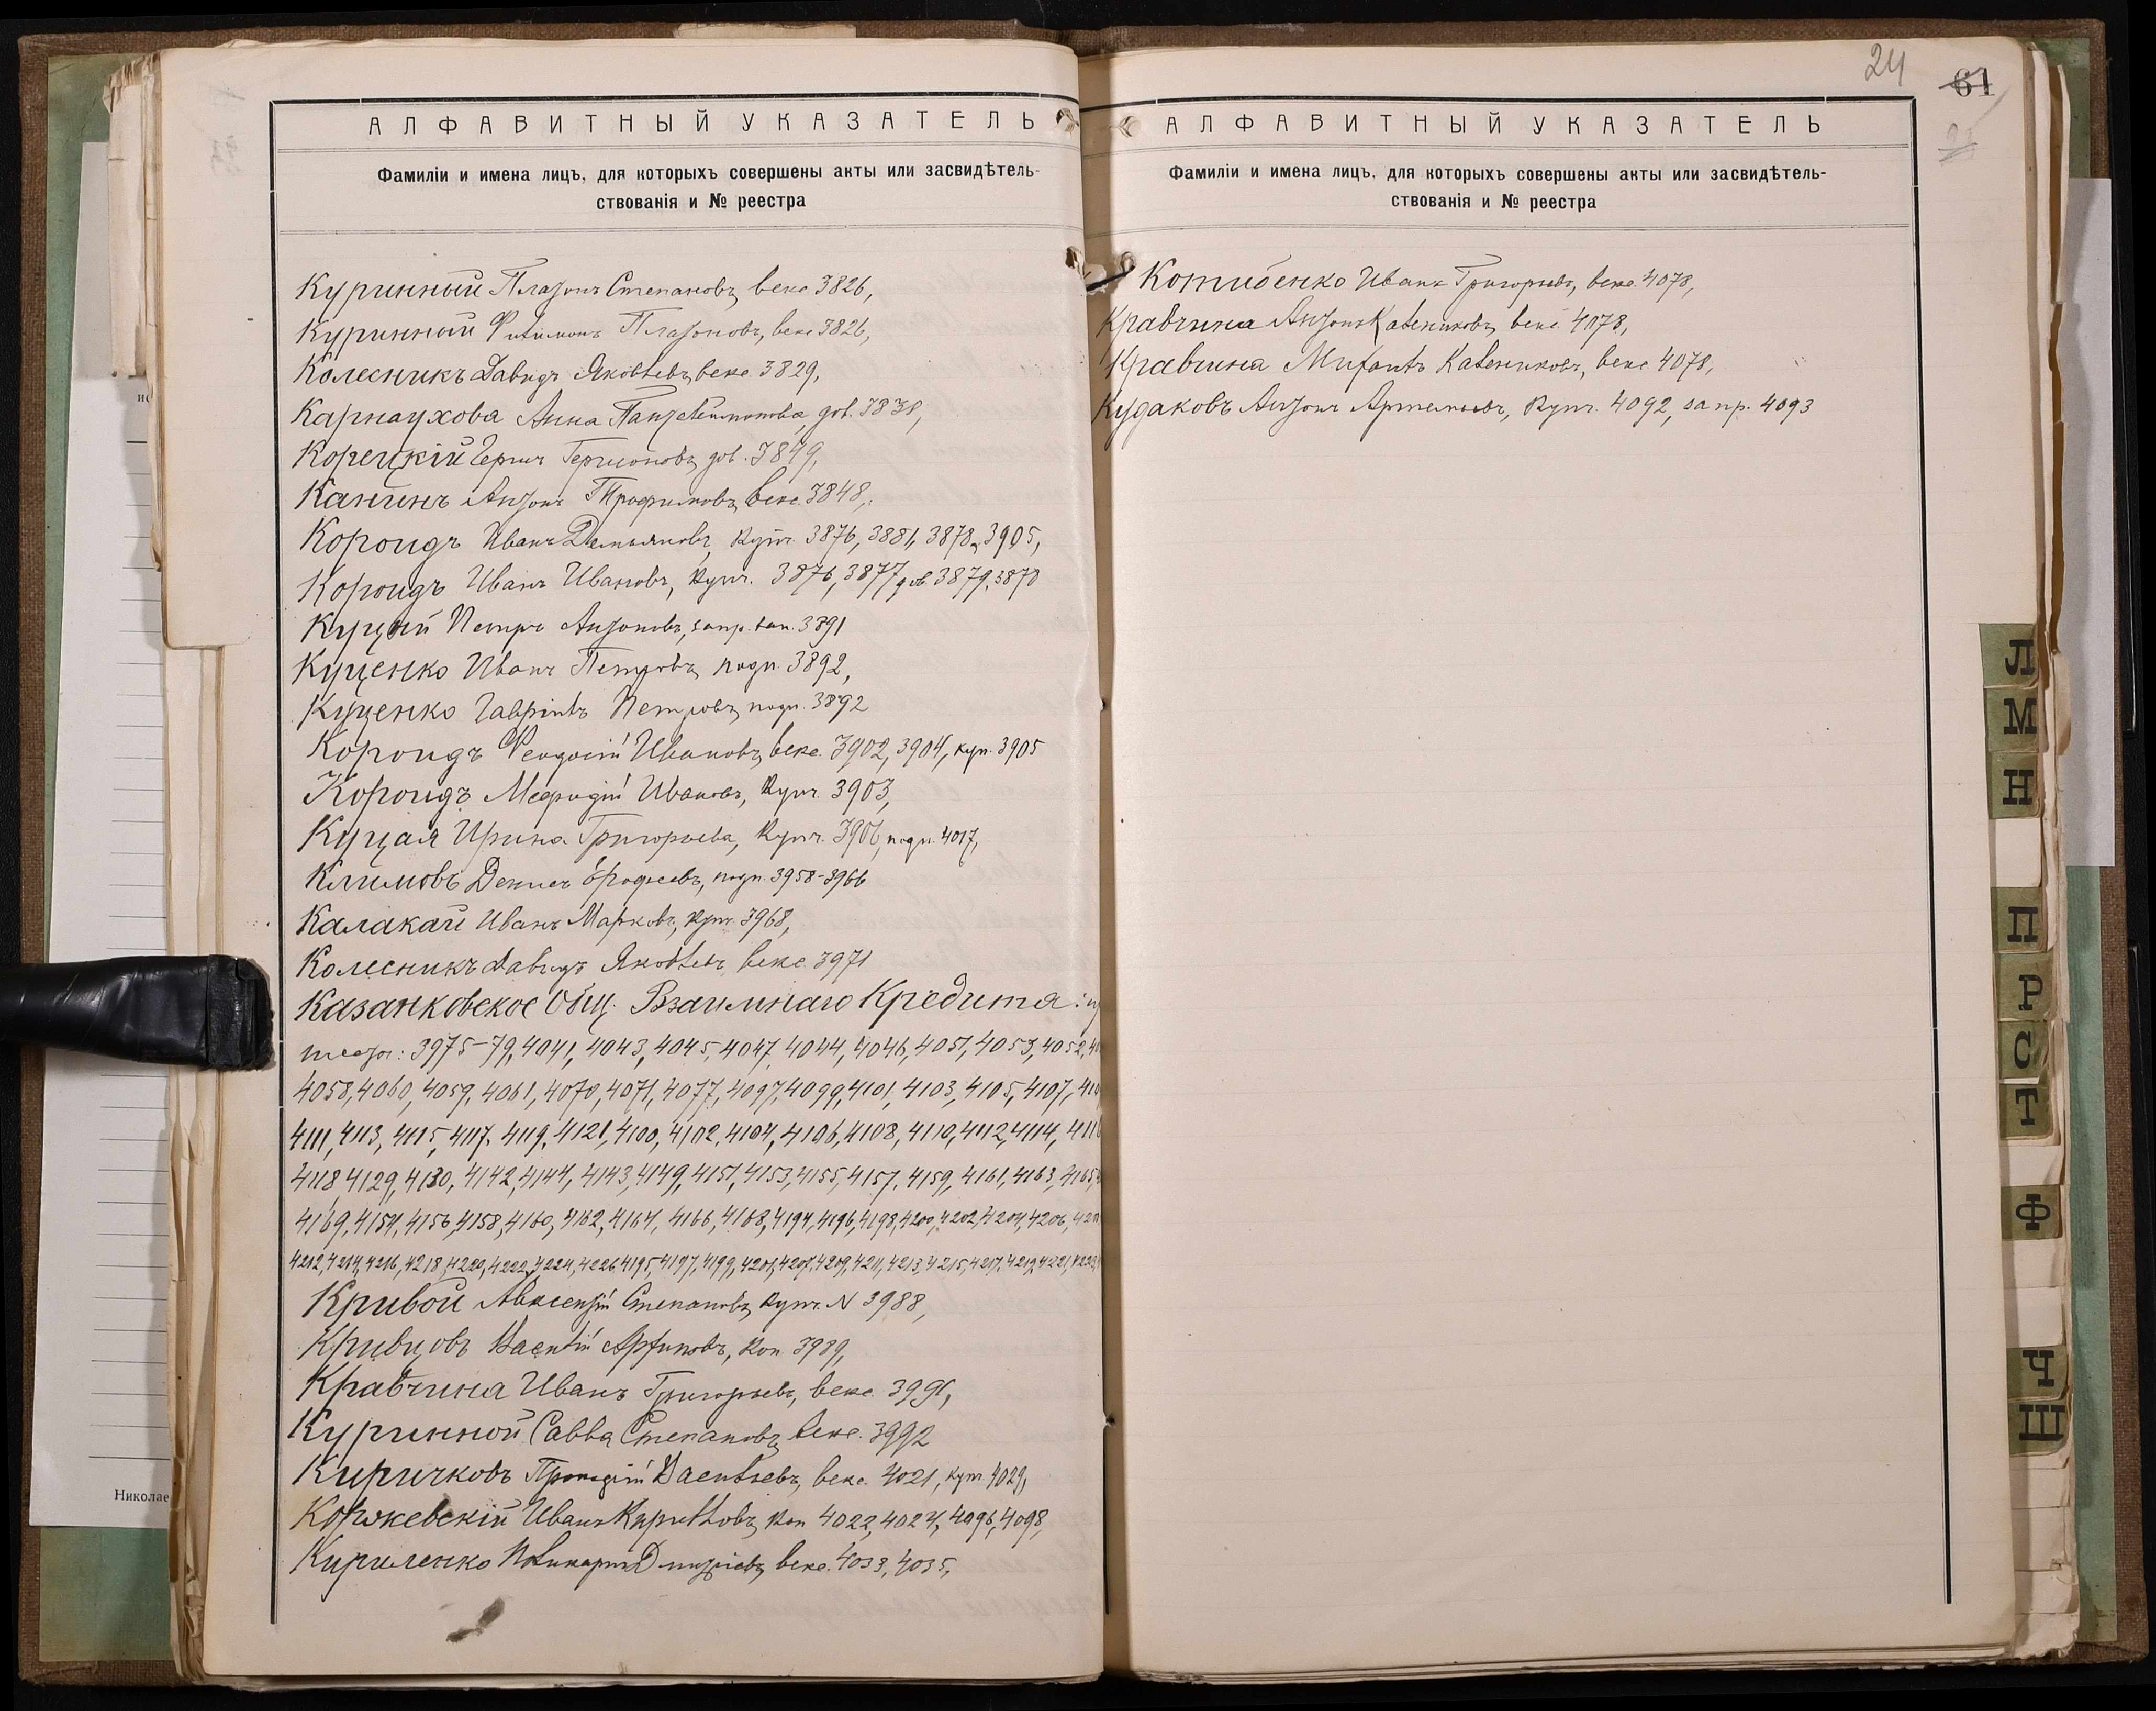 АЛФАВИТНЫЙ УКАЗАТЕЛЬ
Фамиліи и имена лицъ, для которыхъ совершены акты или засвидѣтель-
ствованія и № реестра
Куринный Платонъ Степановъ, векс. 3826,
Куринный Филимонъ Платоновъ, векс 3826,
Колесникъ Давидъ Яковлевъ, векс. 3829,
Карнаухова Анна Пантелеймонова, дов. 3838,
Корецкій Герш Гершоновъ, дов. 3849,
Канинъ Антонъ Трофимовъ, векс. 3848,
Короидъ Иванъ Демьяновъ, купч. 3876, 3881, 3878, 3905,
Короидъ Иванъ Ивановъ, купч. 3876, 3877, дов. 3879, 3870
Куцый Петръ Антоновъ, запр. 3891
Куценко Иванъ Петровъ, подп. 3892,
Куценко Гавріилъ Петровъ, подп. 3892
Короидъ Феодосій Ивановъ, векс. 3902, 3904, куп. 3905
Короидъ Мефодій Ивановъ, купч. 3903,
Куцая Ирина Григорьева, купч. 3906, подп. 4017,
Климовъ Денисъ Ерофеевъ, подп. 3958-3966
Калакай Иванъ Марковъ, купч. 3968,
Колесникъ Давидъ Яковлевъ, векс. 3971
Казанковское Общ. Взаимнаго Кредита:
3975-79, 4041, 4043, 4045, 4047, 4044, 4046, 4051, 4053, 4052,
4058, 4060, 4059, 4061, 4070, 4071, 4077, 4097, 4099, 4101, 4103, 4105, 4107,
4111, 4113, 4115, 4117, 4119, 4121, 4100, 4102, 4104, 4106, 4108, 4110, 4112, 4114,
4118, 4129, 4130, 4142, 4144, 4143, 4149, 4151, 4153, 4155, 4157, 4159, 4161, 4163, 4165,
4169, 4154, 4156, 4158, 4160, 4162, 4164, 4166, 4168, 4194, 4196, 4198, 4200, 4202, 4204, 4206,
4212, 4214, 4216, 4218, 4220, 4222, 4224, 4226, 4195, 4197, 4199, 4201, 4207, 4209, 4211, 4213, 4215, 4217, 4219, 4221, 4223,
Кривой Авксентій Степановъ, купч. N 3988,
Кривцовъ Василій коп. 3989,
Кравчина Иванъ Григорьевъ, векс. 3991,
Куринной Савва Степановъ, векс. 3992
Киричковъ Васильевъ, векс. 4021, купч. 4029,
Коржевскій Иванъ Кирилловъ, коп 4022, 4024, 4096, 4098,
Кириленко Поликарпъ Дмитріевъ, векс. 4033, 4035,
Николае
24
61
АЛФАВИТНЫЙ УКАЗАТЕЛЬ
Фамиліи и имена лицъ, для которыхъ совершены акты или засвидѣтель-
ствованія и № реестра
Иванъ Григорьевъ, векс. 4078,
Кравчина Антонъ Калениковъ, векс. 4078,
Кравчина Калениковъ, векс 4078,
Кудаковъ Антонъ Артемьевъ, купч. 4092, запр. 4093
Л
М
Н
П
Р
С
Т
Ф
Ч
Ш